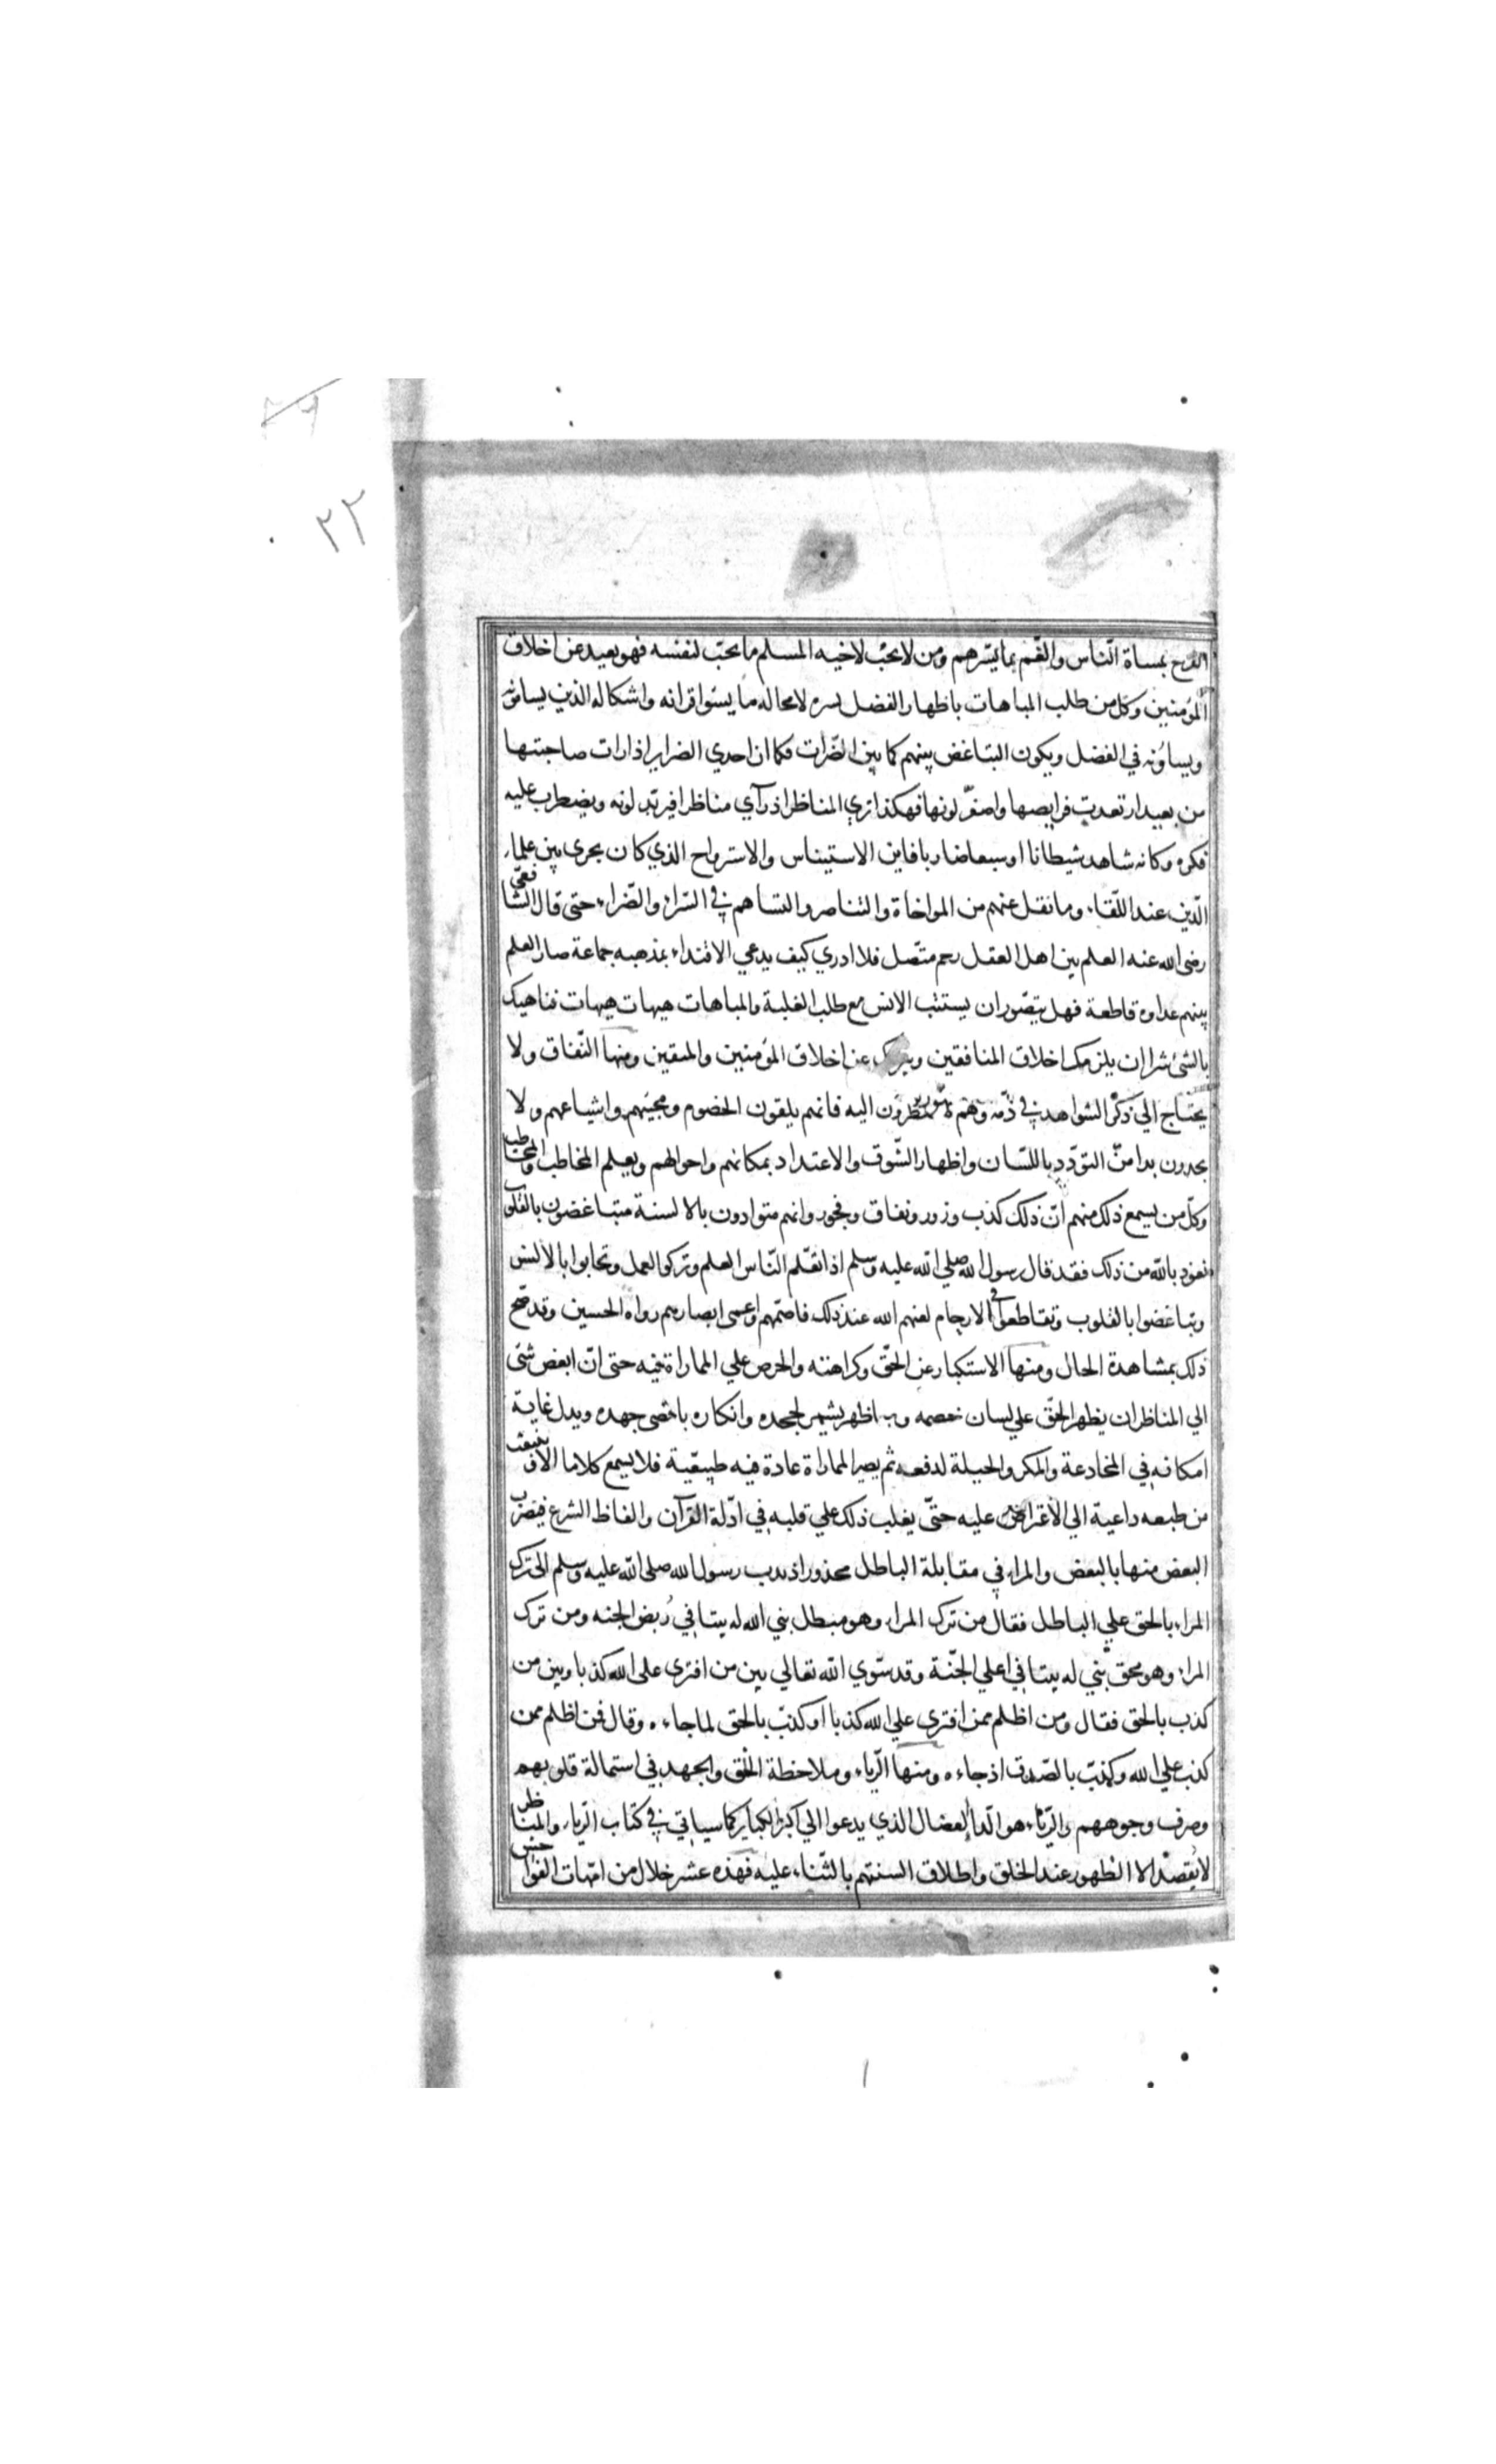 ٢٢
الفرح بمساة النّاس والغّم بما يسّرهم ومن لا يحبّ لاخيه المسلم ما يحبّ لنفسه فهو بعيد عن اخلاق
المؤمنين وكل من طلب المباهات باظهار الفضل يسره لا محاله ما يسؤاقرانه واشكاله الذين يسامونه
ويساوُنه في الفضل ويكون التباغض بينهم كما بين الضّرات فكما ان احدي الضراير اذا رات صاحبتها
من بعيد ارتعدت فرايصها واصفرّ لونها فهكذا تري المناظر اذ رآي مناظرا فيربّد لونه ويضطرب عليه
فكره وكانه شاهد شيطانا او سبعا ضاريا فاين الاستيناس والاسترواح الذي كان يجري بين علماء
الدّين عند اللّقاء وما نقل عنهم من المواخاة والتناصر والتساهم في السّراء والضّراء حتى قال الشافعيّ
رضى الله عنه العلم بين اهل العقل رحم متّصل فلا ادري كيف يدعي الاقتداء بمذهبه جماعة صار العلم
بينهم عداوه قاطعة فهل يتصّور ان يستتب الانس مع طلب الغلبة والمباهات هيهات هيهات فناهيك
بالشئ شرا ان يلزمك اخلاق المنافقين ويبرك عن اخلاق المؤمنين والمتقين ومنها النّفاق ولا
يحتاج الي ذكر الشواهد في ذمّه وهم مضطرون اليه فانهم يلقون الخصوم ومحبيهم واشياعهم ولا
يجدون بدا منّ التودّد باللسّان واظهار الشّوق والاعتداد بمكانهم واحوالهم ويعلم المخاطب والمخاطب
وكلّ من يسمع ذلك منهم انّ ذلك كذب وزور ونفاق وفجور وانهم متوادون بالالسنة متباغضون بالقلوب
نعوذ بالله من ذلك فقد قال رسول الله صلي الله عليه وسلم اذا تعّلم النّاس العلم وتركوا لعمل وتحابوا بالالسن
وتباغضوا بالقلوب وتقاطعوا في الارحام لعنهم الله عند ذلك فاصّمهم واعمى ابصارهم رواه الحسين وقد صّح
ذلك بمشاهدة الحال ومنها الاستكبار عن الحقّ وكراهته والحرص علي المماراة فيه حتى انّ ابغض شئ
الي المناظر ان يظهر الحقّ علي لسان خصمه ومهما ظهر يشمر لجحده وانكاره باقصى جهده ويبدل غاية
امكانه في المخادعة والمكر والحيلة لدفعه ثم يصير المماراة عادة فيه طبيعّية فلا يسمع كلاما الا وينبعث
من طبعه داعية الي الاعتراض عليه حتىّ يغلب ذلك علي قلبه في ادّلة القرآن والفاظ الشرع فيضرب
البعض منها بالبعض والمراء في مقابلة الباطل محذور اذ ندب رسول الله صلى الله عليه وسلم الى ترك
المراء بالحق علي الباطل فقال من ترك المراء وهو مبطل بني الله له بيتا في رُبض الجنه ومن ترك
المراء وهو محق بُني له بيتا في اعلي الجنّة وقد سّوي الله تعالي بين من افترى على الله كذبا وبين من
كذب بالحق فقال ومن اظلم ممن افتري علي الله كذبا او كذبّ بالحق لما جاءه وقال فمن اظلم ممن
كذب علي الله وكذبّ بالصّدق اذ جاءه ومنها الّرياء وملاحظة الخلق والجهد في استمالة قلوبهم
وصرف وجوههم والرّياء هو الّداء العضال الذي يدعوا الي اكبر الكباير كما سياتي في كتاب الّرياء والمناظر
لا يُقصد الا الظهور عند الخلق واطلاق السنتهم بالثّناء عليه فهذه عشر خلال من امّهات الفواحش